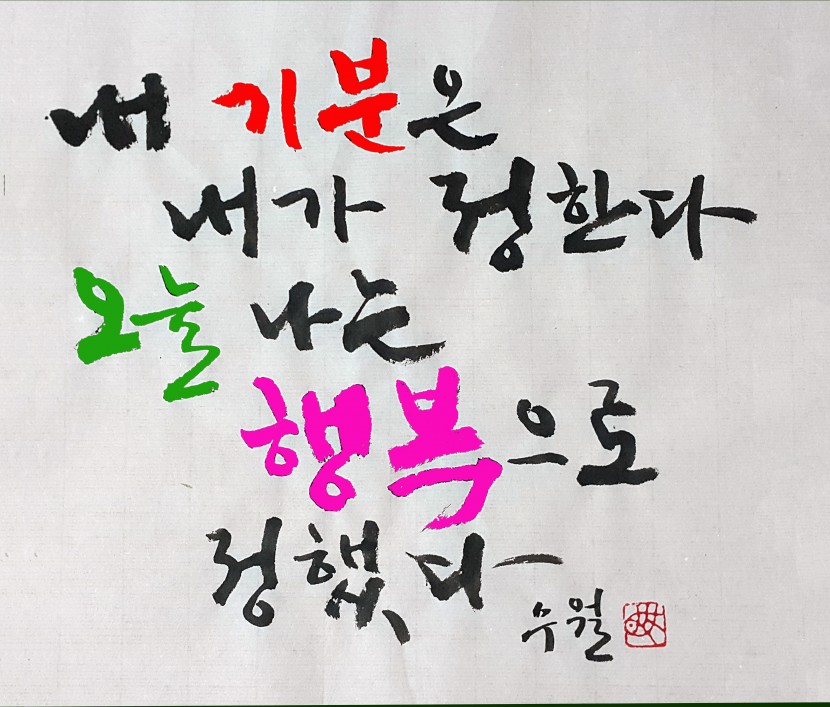 내 기분은
내가 정한다
오늘 나는
행복으로
정했다
수월